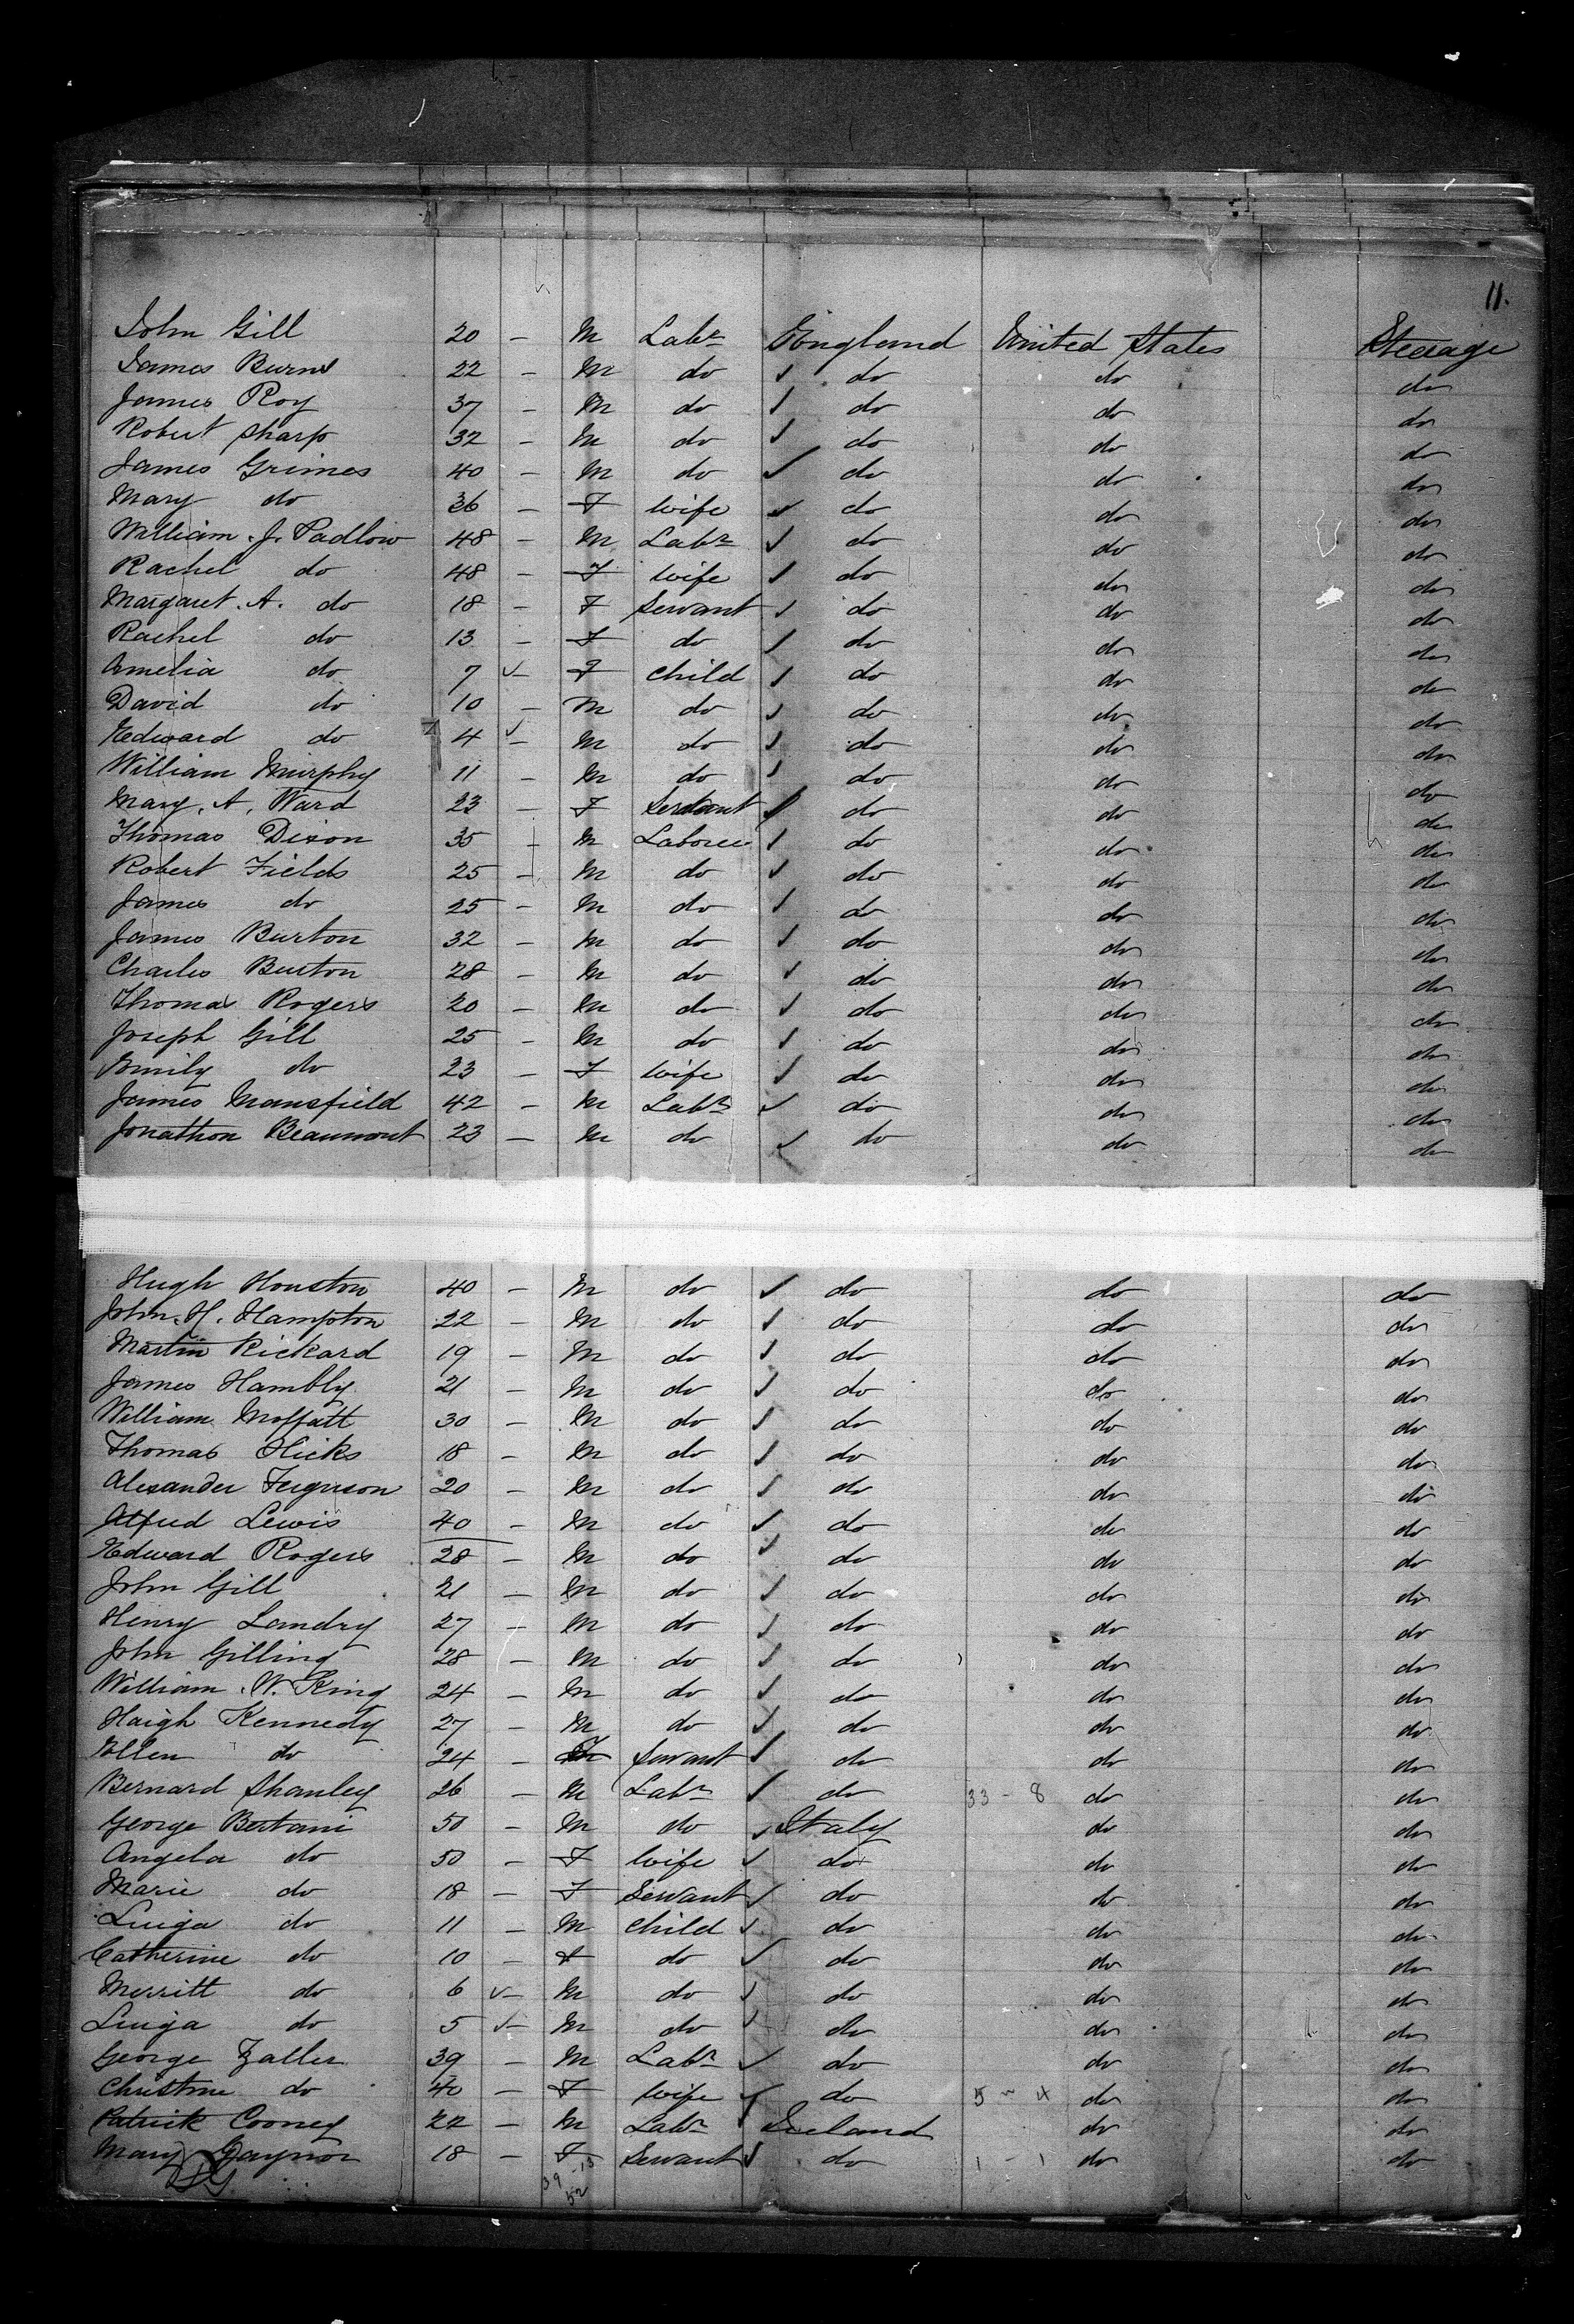 11.
John Gill 20 - M Labr England United States Steerage
James Burns 22 - M do do do do
James Roy 37 - M do do do do
Robert Sharp 32 - M do do do do
James Grimes 40 - M do do do do
Mary do 36 - F Wife do do do
William J. Padlow 48 - M Labr do do do
Rachel do 48 - F Wife do do do
Margaret A. do 18 - F Servant do do do
Rachel do 13 - F do do do do
Amelia do 7 - F Child do do do
David do 10 - M do do do do
Edward do 4 - M do do do do
William Murphy 11 - M do do do do
Mary A. Ward 23 - F Servant do do do
Thomas Dixon 35 - M Laborer do do do
Robert Fields 25 - M do do do do
James do 25 - M do do do do
James Burton 32 - M do do do do
Charles Burton 28 - M do do do do
Thomas Rogers 20 - M do do do do
Joseph Gill 25 - M do do do do
Emily do 23 - F Wife do do do
James Mansfield 42 - M Labr do do do
Jonathon Beaumont 23 - M do do do do
Hugh Houston 40 - M do do do do
John H. Hampton 22 - M do do do do
Martin Rickard 19 - M do do do do
James Hambly 21 - M do do do do
William Moffatt 30 - M do do do do
Thomas Hicks 18 - M do do do do
Alexander Ferguson 20 - M do do do do
Alfred Lewis 40 - M do do do do
Edward Rogers 28 - M do do do do
John Gill 21 - M do do do do
Henry Landry 27 - M do do do do
John Gilling 28 - M do do do do
William W. King 24 - M do do do do
Haigh Kennedy 27 - M do do do do
Ellen do 24 - F Servant do do do
Bernard Shanley 26 - M Labr do 33 - 8 do do
George Bertani 50 - M do Italy do do
Angela do 50 - F Wife do do do
Marie do 18 - F Servant do do do
Luiga do 11 - M Child do do do
Catherine do 10 - F do do do do
Merritt do 6 - M do do do do
Luiga do 5 - M do do do do
George Zaller 39 - M Labr do do do
Christine do 40 - F Wife do 5 - 4 do do
Patrick Cooney 22 - M Labr Ireland do do
Mary Gaynor 18 - F Servant do 1 - 1 do do
39 - 13
52